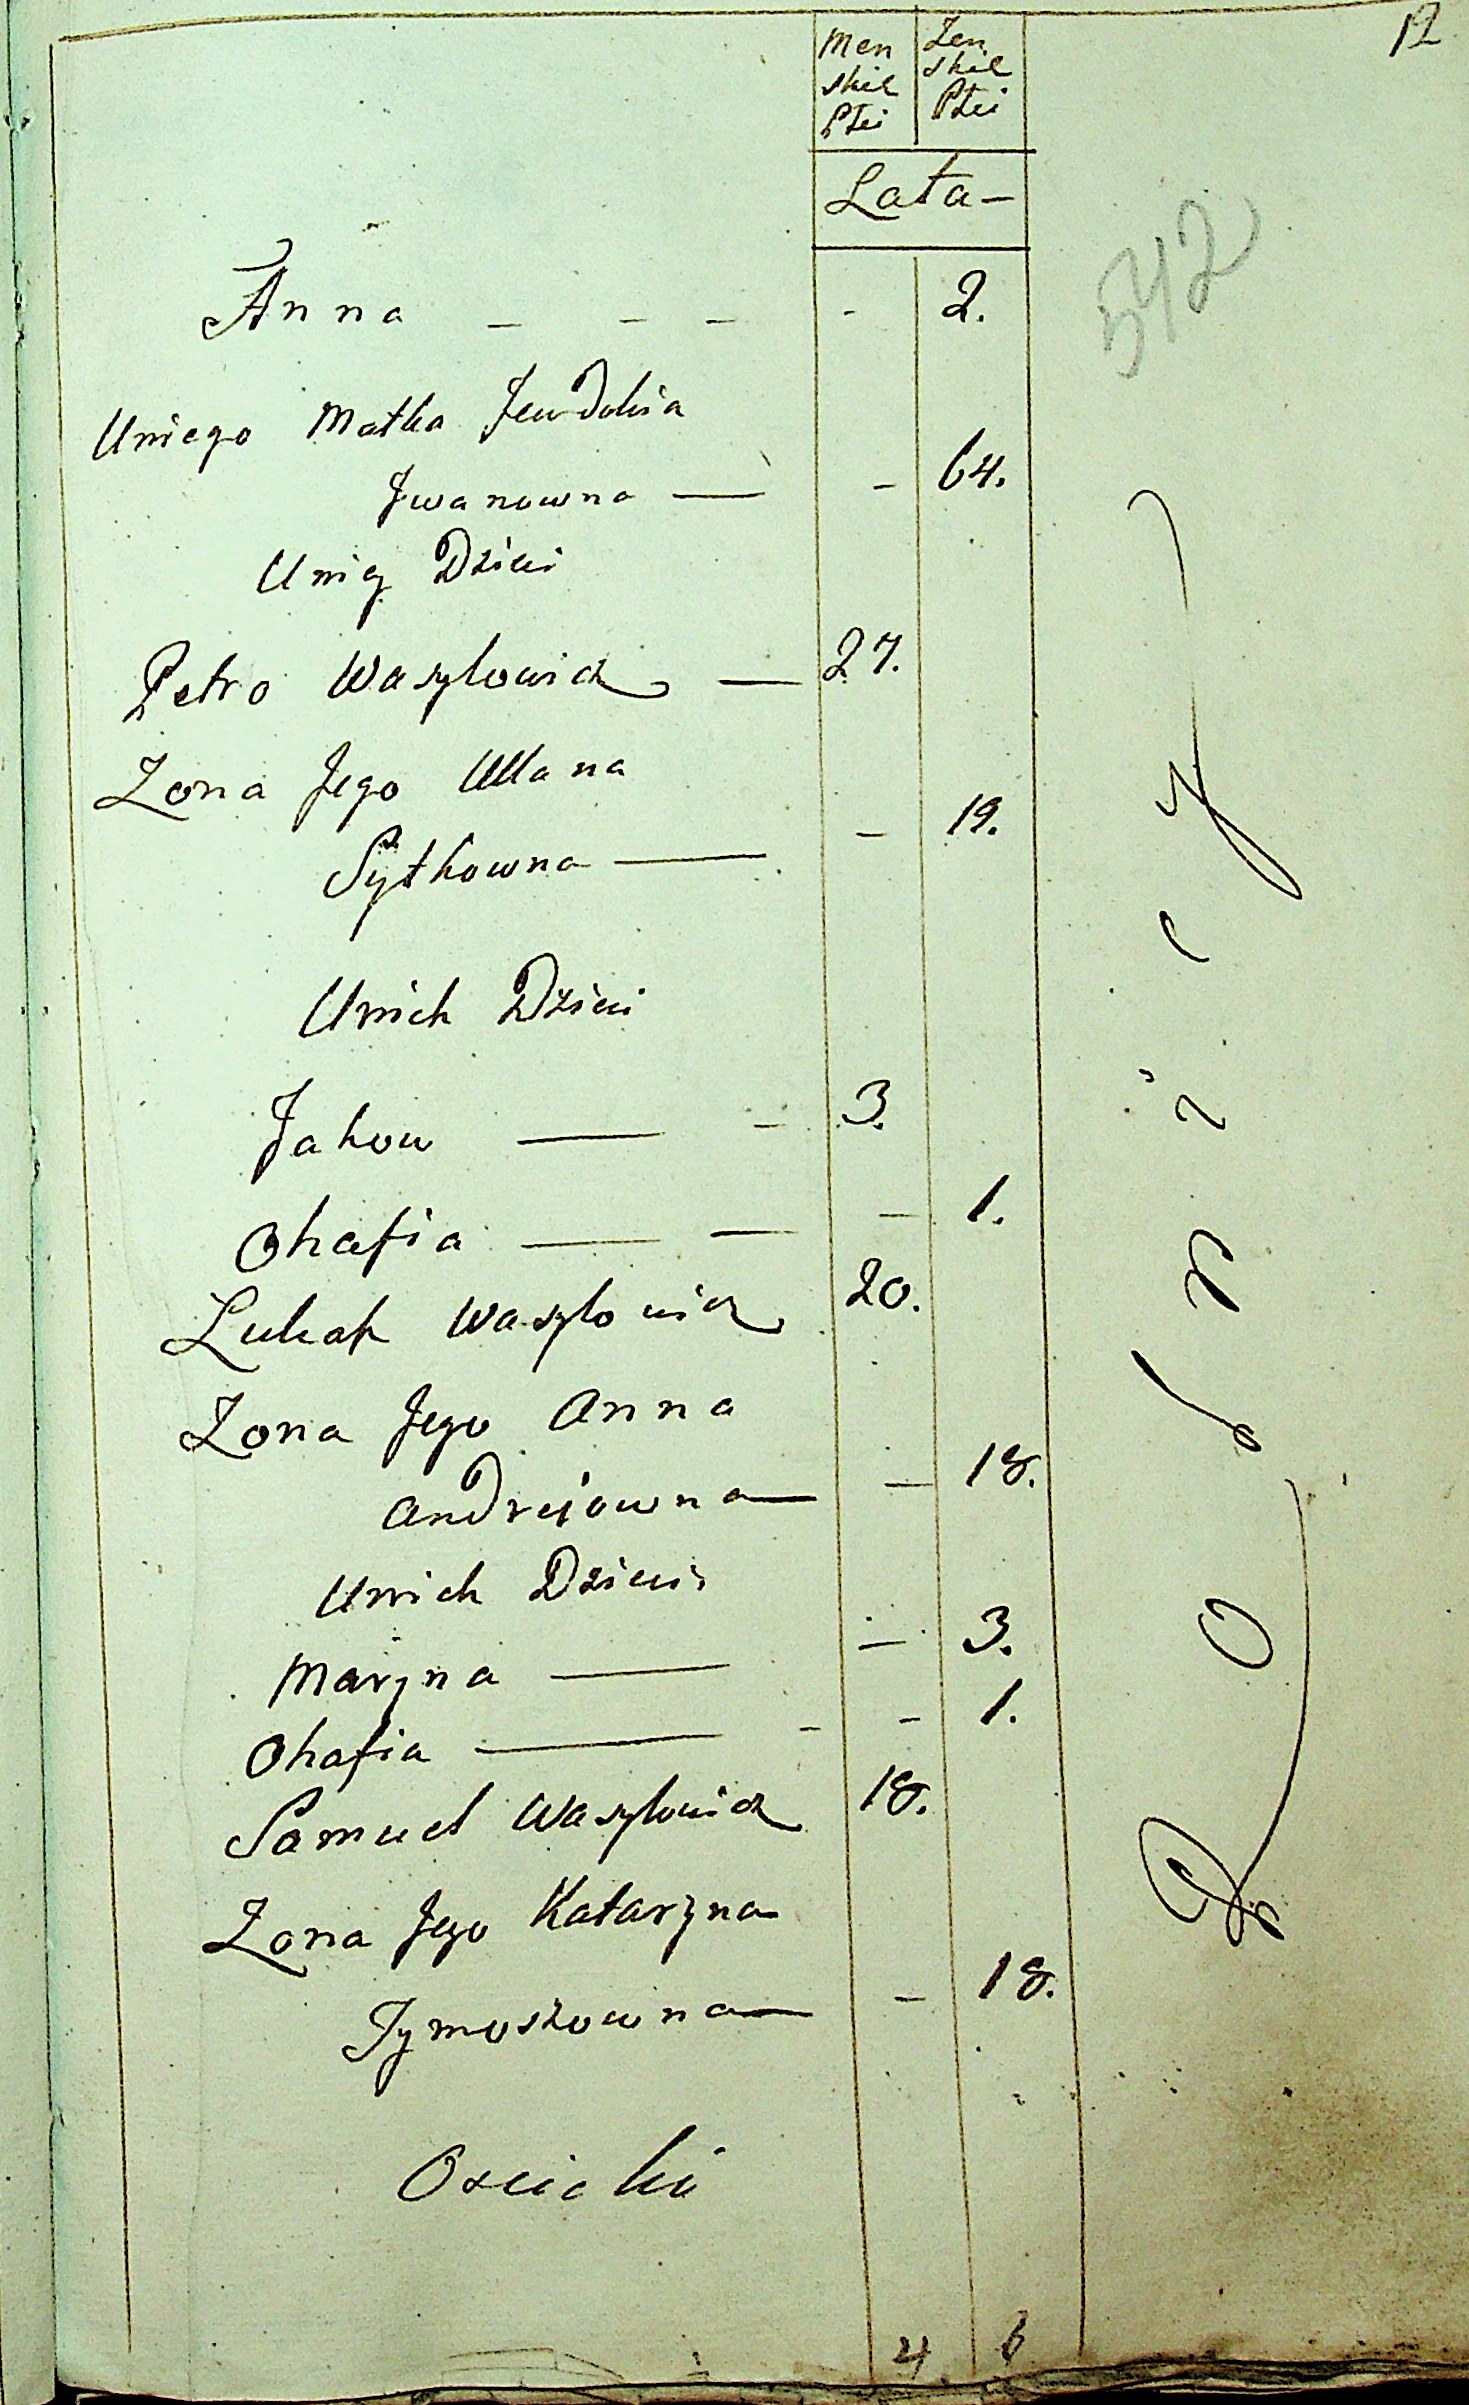 12
Men Zen
skie skie
Płci Płci
Lata —
542
Anna — — — - 2.
Uniego Matka Jewdokia
Jwanowna — - 64.
Uniey Dzieci
Petro Wasylowicz — 27.
Zona Jego Ullana
Sytkowna — - 19.
Unich Dzieci
Jakow — - 3.
Ohafia — — - 1.
Lukasz Wasylowicz 20.
Zona Jego Anna
Andreiowna — - 18.
Unich Dzieci
Maryna — - 3.
Ohafia — - - 1.
Samuel Wasylowicz 18.
Zona Jego Kataryna
Tymoszowna — - 18.
4 6